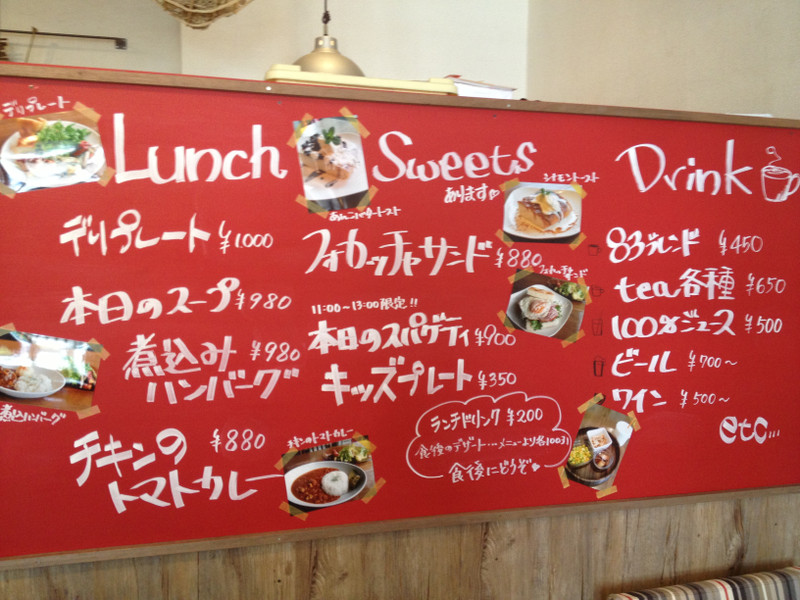 デリプレート
Lunch
デリプレート ¥1000
本日のスープ ¥980
煮込み
ハンバーグ ¥980
煮込ハンバーグ
チキンの
トマトカレー ¥880
チキンのトマトカレー
Sweets
あります
あんこバタートースト
シナモントースト
フォカッチャサンド ¥880
11:00~13:00限定!!
本日のスパゲティ ¥900
キッズプレート ¥350
ランチドリンク ¥200
食後のデザート…メニューより各100引
食後にどうぞ
Drink
83ブレンド ¥450
tea各種 ¥650
100%ジュース ¥500
ビール ¥700~
ワイン ¥500~
etc...